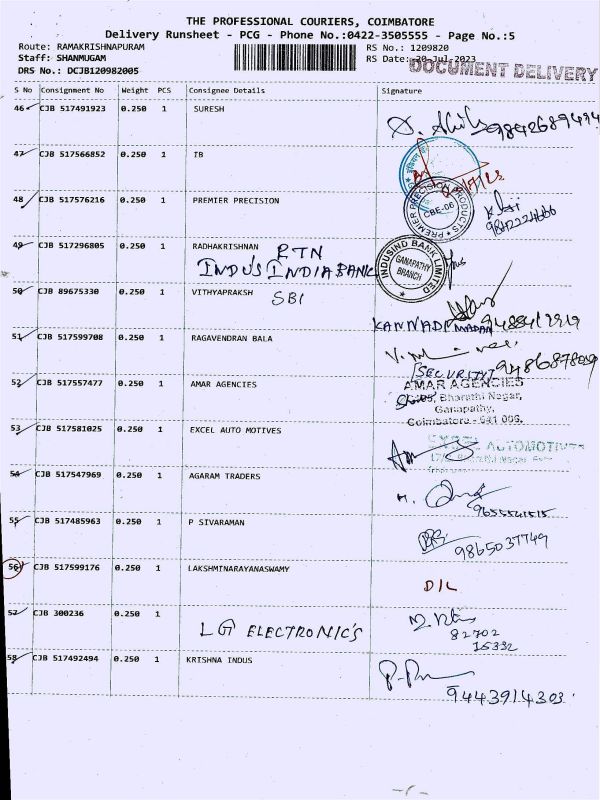 THE PROFESSIONAL COURIERS, COIMBATORE
Delivery Runsheet - PCG - Phone No.:0422-3505555 - Page No.:5
Route: RAMAKRISHNAPURAM RS No.: 1209820
Staff: SHANMUGAM RS Date: 20-Jul-2023
DRS No.: DCJB120982005 DOCUMENT DELIVERY
S No Consignment No Weight PCS Consignee Details Signature
46 CJB 517491923 0.250 1 SURESH
9842689494
47 CJB 517566852 0.250 1 IB
48 CJB 517576216 0.250 1 PREMIER PRECISION
PREMIER PRECISION PRODUCTS CBE-06
49 CJB 517296805 0.250 1 RADHAKRISHNAN RTN
INDUS INDIA BANK
INDUSIND BANK LIMITED GANAPATHY BRANCH
50 CJB 89675330 0.250 1 VITHYAPRAKSH SBI
51 CJB 517599708 0.250 1 RAGAVENDRAN BALA
SECURITY
52 CJB 517557477 0.250 1 AMAR AGENCIES
AMAR AGENCIES
Bharathi Nagar,
Ganapathy,
Coimbatore - 641 006.
53 CJB 517581025 0.250 1 EXCEL AUTO MOTIVES
54 CJB 517547969 0.250 1 AGARAM TRADERS
55 CJB 517485963 0.250 1 P SIVARAMAN
9865037749
56 CJB 517599176 0.250 1 LAKSHMINARAYANASWAMY
D/L
57 CJB 300236 0.250 1
LG ELECTRONIC'S
82702
15332
58 CJB 517492494 0.250 1 KRISHNA INDUS
9443914303